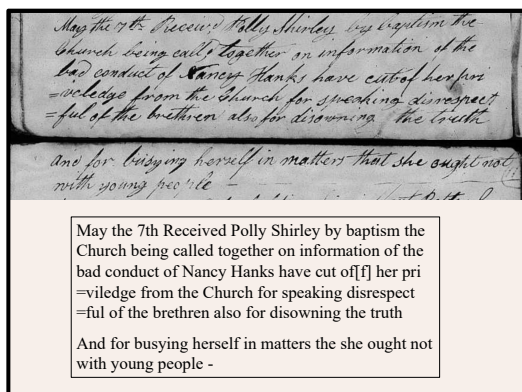 May the 7th Receiv,d Polly Shirley by baptism the
Church being call,d together on information of the
bad conduct of Nancy Hanks have cut of her pri
=veledge from the Church for speaking disrespect
=ful of the brethren also for disowning the truth
and for busying herself in matters that she ought not
with young people -
May the 7th Received Polly Shirley by baptism the
Church being called together on information of the
bad conduct of Nancy Hanks have cut of[f] her pri
=viledge from the Church for speaking disrespect
=ful of the brethren also for disowning the truth
And for busying herself in matters the she ought not
with young people -